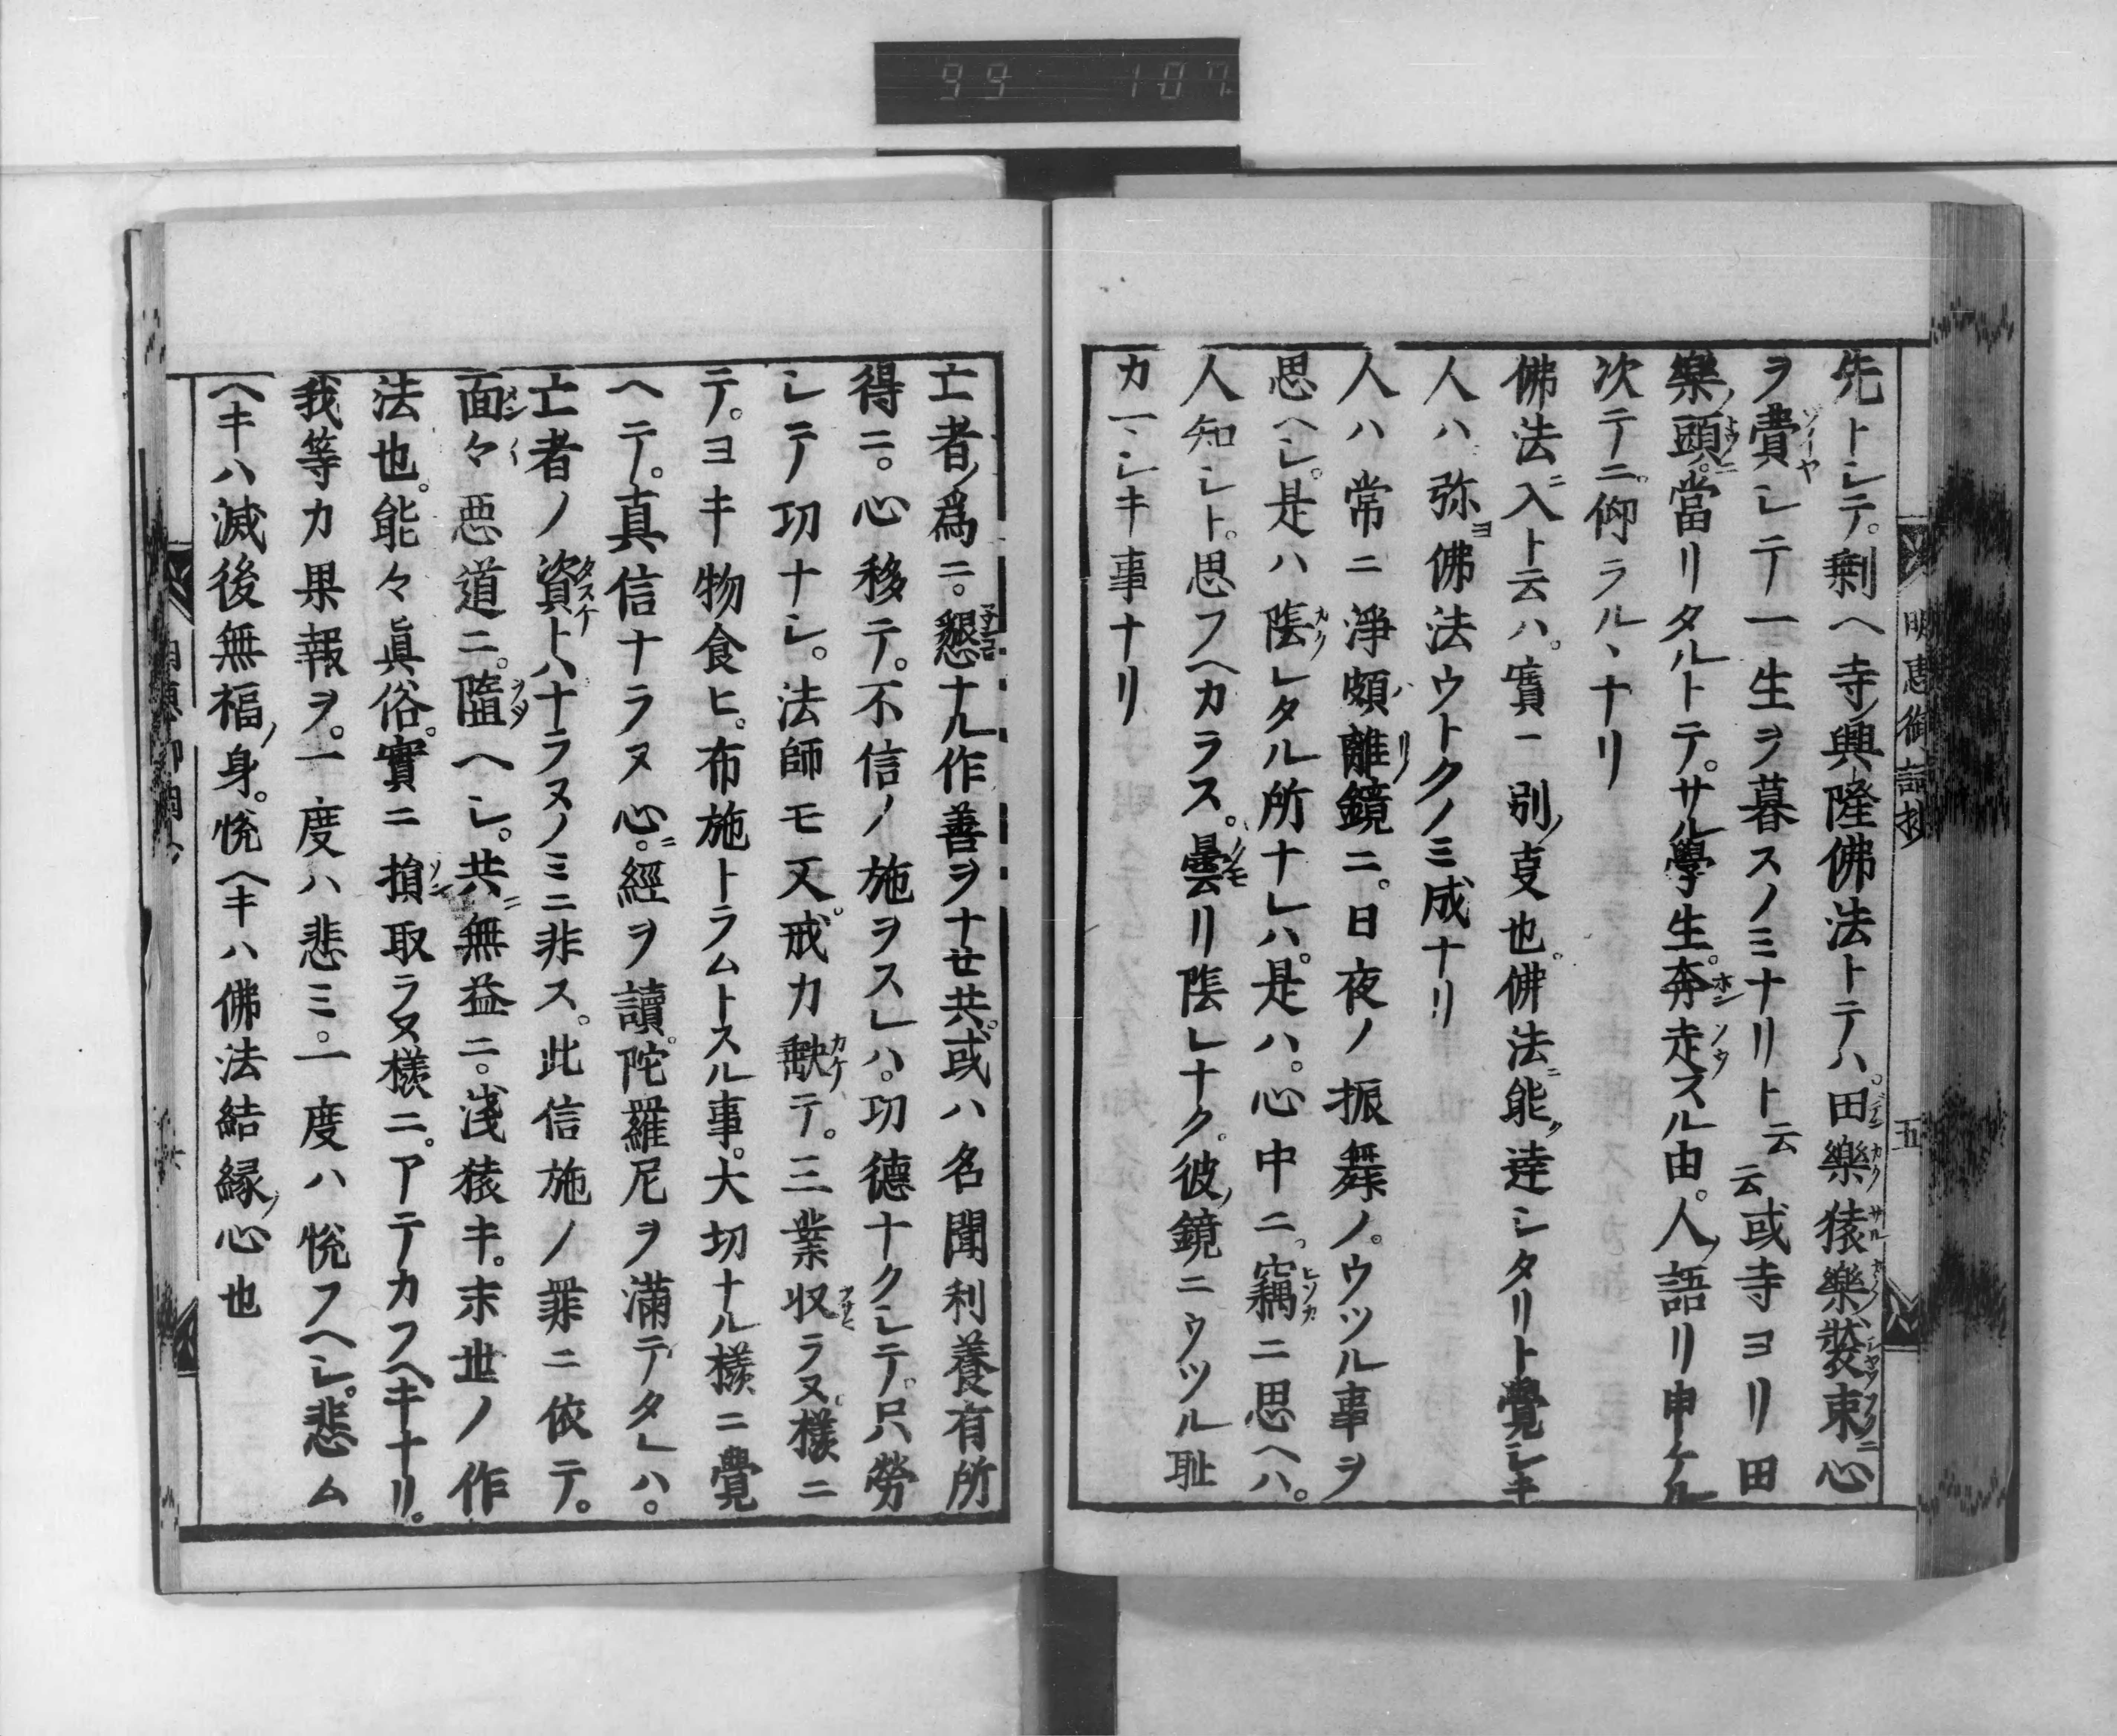 99 107
明惠御詞抄 五
先トシテ。剰ヘ寺ノ興隆佛法トテハ。田樂猿樂ノ裝束ニ心
ヲ費シテ一生ヲ暮スノミナリト云云或寺ヨリ田
樂ノ頭ニ。當リタルトテ。サル學生。奔走スル由。人ノ語リ申ケル
次テニ。仰ラルヽナリ
佛法ニ入ト云ハ。實ニ別ノ叓也。佛法ニ能ク達シタリト覺シキ
人ハ弥ヨ佛法ウトクノミ成ナリ
人ハ常ニ淨頗離鏡ニ。日夜ノ振舞ノ。ウツル事ヲ
思ヘシ。是ハ陰レタル所ナレハ。是ハ。心中ニ。竊ニ思ヘハ。
人知シト。思フヘカラス。曇リ陰レナク。彼ノ鏡ニウツル耻
カマシキ事ナリ
亡者ノ爲ニ。懇ナル作善ヲナセ共。或ハ名聞利養有所
得ニ。心移テ。不信ノ施ヲスレハ。功德ナクシテ。只勞
シテ功ナシ。法師モ又。戒カ缺テ。三業収ラヌ。樣ニ
テ。ヨキ物食ヒ。布施トラムトスル事。大切ナル樣ニ覺
ヘテ。真信ナラヌ心ニ。經ヲ讀。陀羅尼ヲ滿テタレハ。
亡者ノ資トハナラヌノミニ非ス。此信施ノ罪ニ依テ。
面々惡道ニ。隨ヘシ。共ニ無益ニ。淺猿キ。末世ノ作
法也。能々眞俗。實ニ損取ラヌ樣ニ。アテカフヘキナリ。
我等カ果報ヲ。一度ハ悲ミ。一度ハ悦フヘシ。悲ム
ヘキハ滅後無福ノ身。悦ヘキハ佛法結縁ノ心也